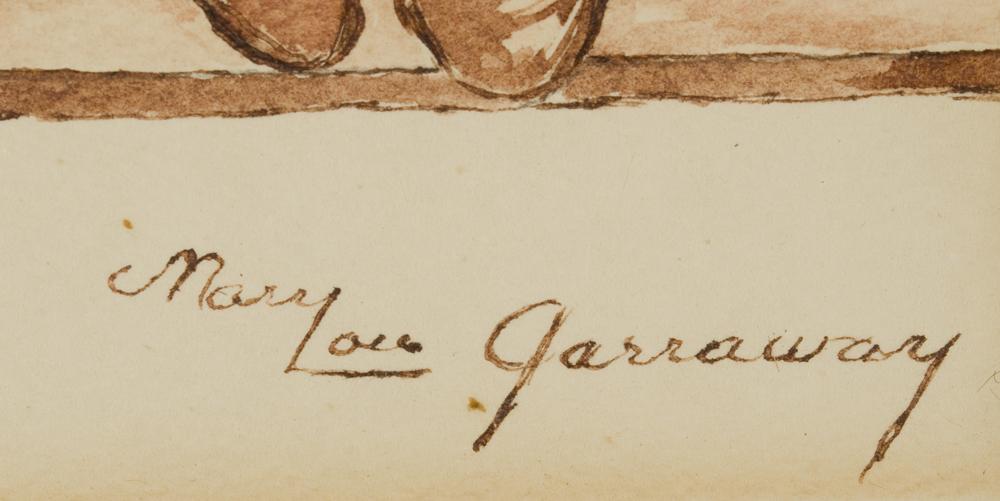 Mary Lou Garraway